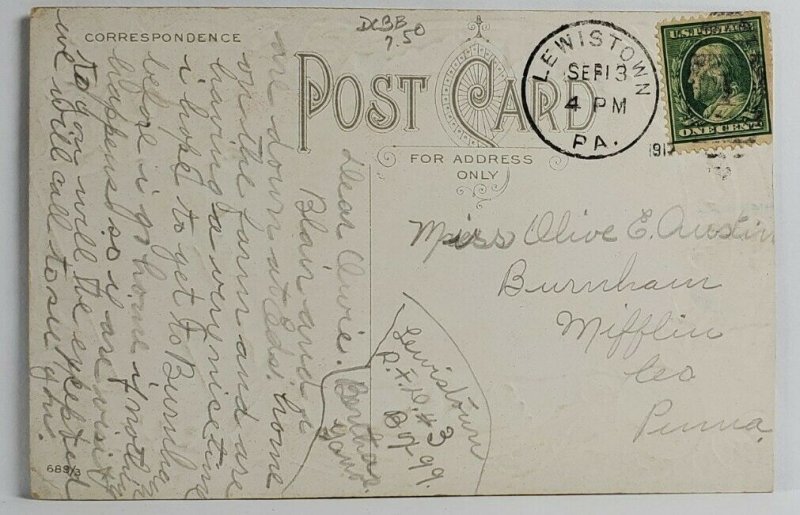 DCBB
7.50
CORRESPONDENCE
POST CARD
FOR ADDRESS
ONLY
LEWISTOWN
SEP 13
4 PM
PA.
191
U.S. POSTAGE
ONE CENT
Miss Olive E. Austin
Burnham
Mifflin
Co
Penna.
Dear Ovie.
Blair and I
are down at Eds. home
on the farm and are
having a very nice time
i hope to get to Burnham
before i go home if nothing
happens so if are wisit
to you will be expected
we will call to see you.
Lewistown
R.F.D. #3
Box 99.
689/3